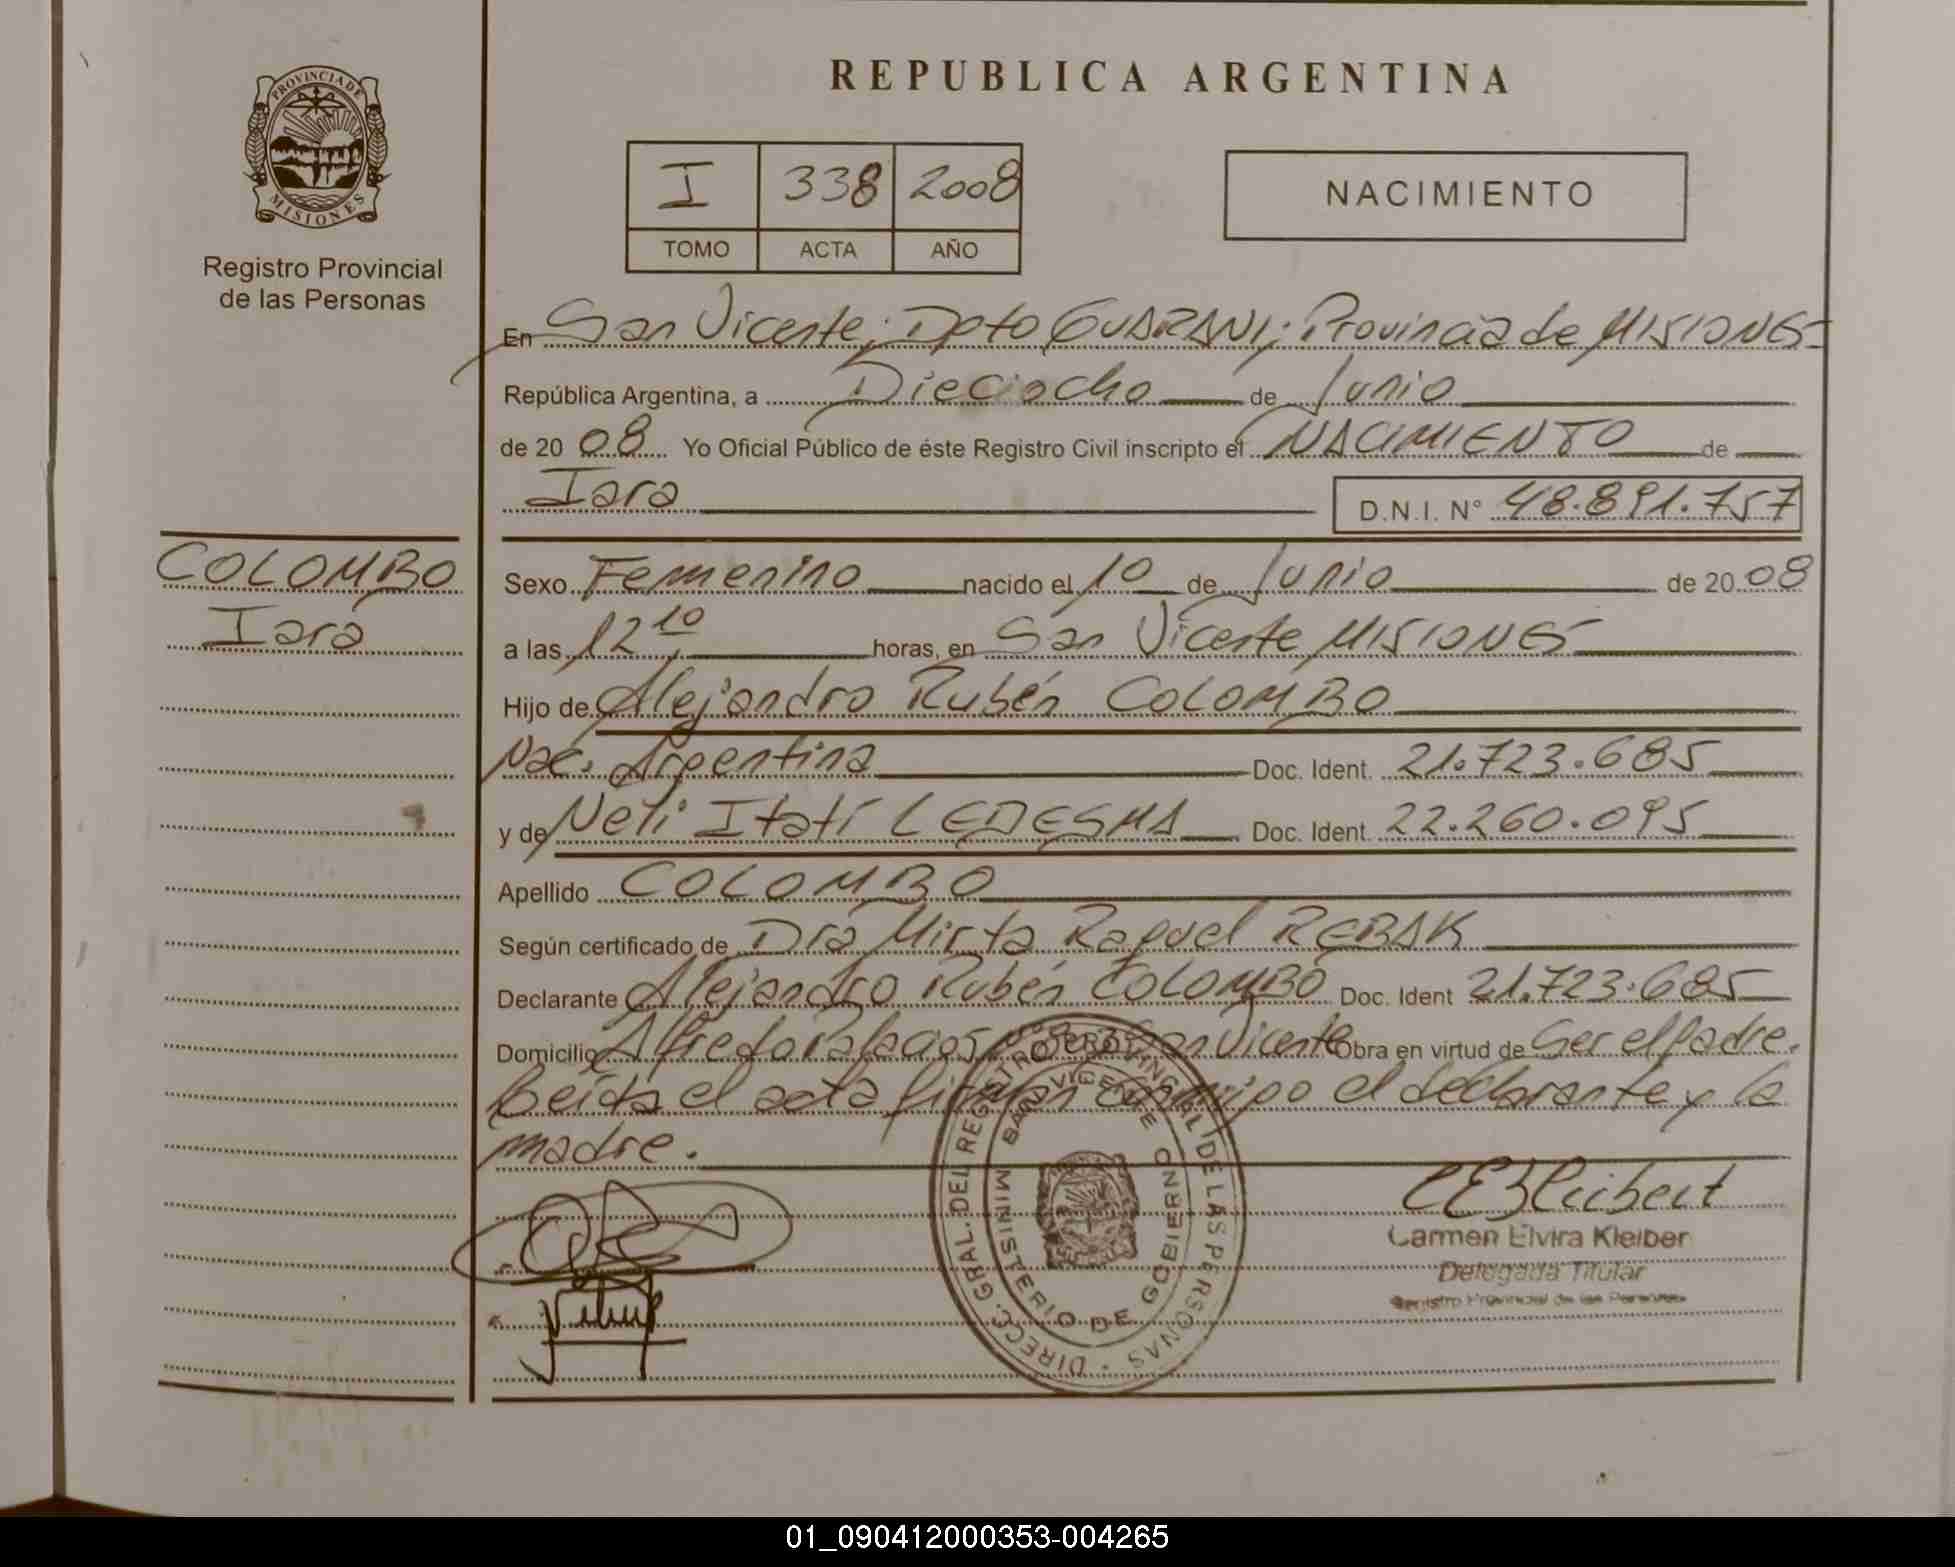 PROVINCIA DE
MISIONES
Registro Provincial
de las Personas
REPUBLICA ARGENTINA
I 338 2008
TOMO ACTA AÑO
NACIMIENTO
En San Vicente; Dpto GUARANI; Provincia de MISIONES
República Argentina, a Dieciocho de Junio
de 20 08 Yo Oficial Público de éste Registro Civil inscripto el NACIMIENTO de
Iara D.N.I. N° 48.891.757
COLOMBO
Iara
Sexo Femenino nacido el 10 de Junio de 20 08
a las 12 10 horas, en San Vicente MISIONES
Hijo de Alejandro Rubén COLOMBO
Nac. Argentina Doc. Ident. 21.723.685
y de Neli Itatí LEDESMA Doc. Ident. 22.260.095
Apellido COLOMBO
Según certificado de Dra Mirta Raquel REBAK
Declarante Alejandro Rubén COLOMBO Doc. Ident 21.723.685
Domicilio Alfredo San Vicente Obra en virtud de Ser el padre.
Leída el acta firman conmigo el declarante y la
madre.
DIRECC. GRAL. DEL REGISTRO PROVINCIAL DE LAS PERSONAS
SAN VICENTE
MINISTERIO DE GOBIERNO
Carmen Elvira Kleiber
Delegada Titular
Registro Provincial de las Personas
01_090412000353-004265